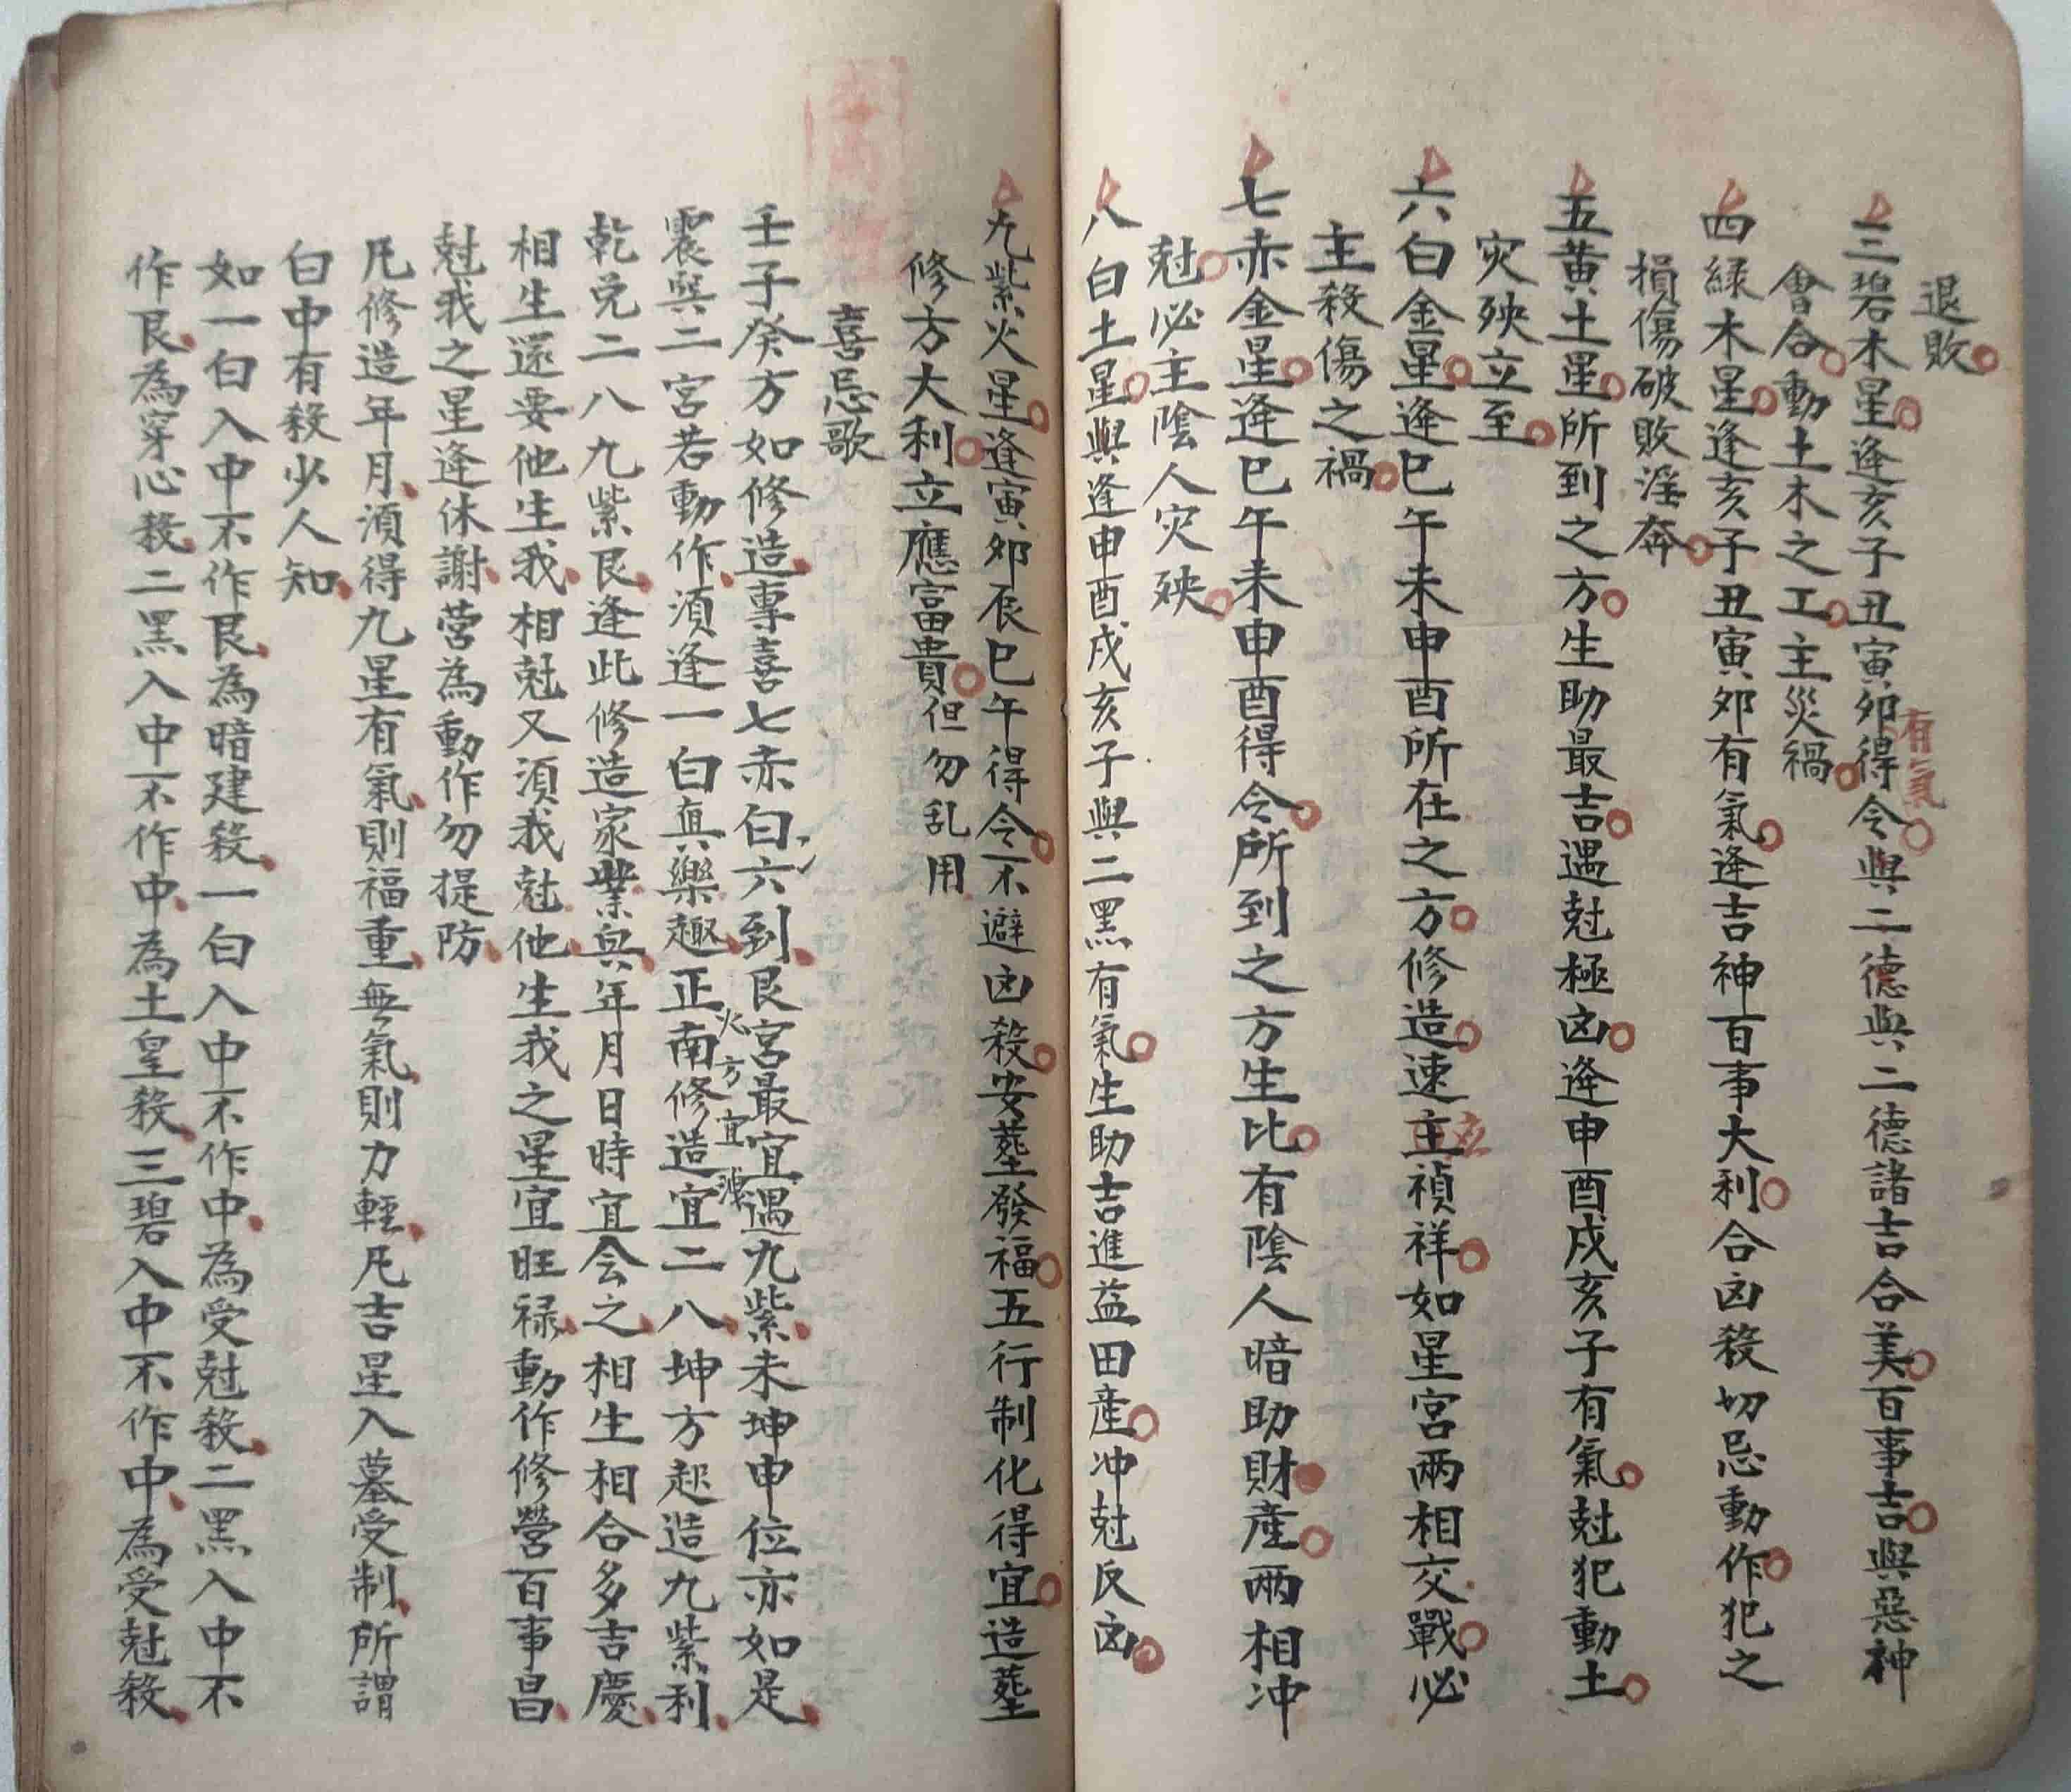 退敗
三碧木星逢亥子丑寅卯得令與二德與二德諸吉合美百事吉與惡神
有氣
會合動土木之工主災禍
四緑木星逢亥子丑寅卯有氣逢吉神百事大利合凶殺切忌動作犯之
損傷破敗淫奔
五黃土星所到之方生助最吉遇尅極凶逢申酉戌亥子有氣尅犯動土
灾殃立至
六白金星逢巳午未申酉所在之方修造速主禎祥如星宮兩相交戰必
立
主殺傷之禍
七赤金星逢巳午未申酉得令所到之方生比有陰人暗助財産兩相冲
尅必主陰人灾殃
八白土星與逢申酉戌亥子與二黑有氣生助吉進益田産冲尅反凶
九紫火星逢寅卯辰巳午得令不避凶殺安塟發福五行制化得宜造塟
修方大利立應富貴但勿乱用
喜忌歌
壬子癸方如修造專喜七赤白六到艮宮最宜遇九紫未坤申位亦如是
火方宜
震巽二宮若動作須逢一白真樂趣正南修造宜二八坤方起造九紫利
乾兑二八九紫艮逢此修造家業興年月日時宜会之相生相合多吉慶
相生還要他生我相尅又須我尅他生我之星宜旺禄動作修營百事昌
尅我之星逢休謝營為動作勿提防
凡修造年月須得九星有氣則福重無氣則力輕凡吉星入墓受制所謂
白中有殺少人知
如一白入中不作艮為暗建殺一白入中不作中為受尅殺二黑入中不
作艮為穿心殺二黑入中不作中為土皇殺三碧入中不作中為受尅殺